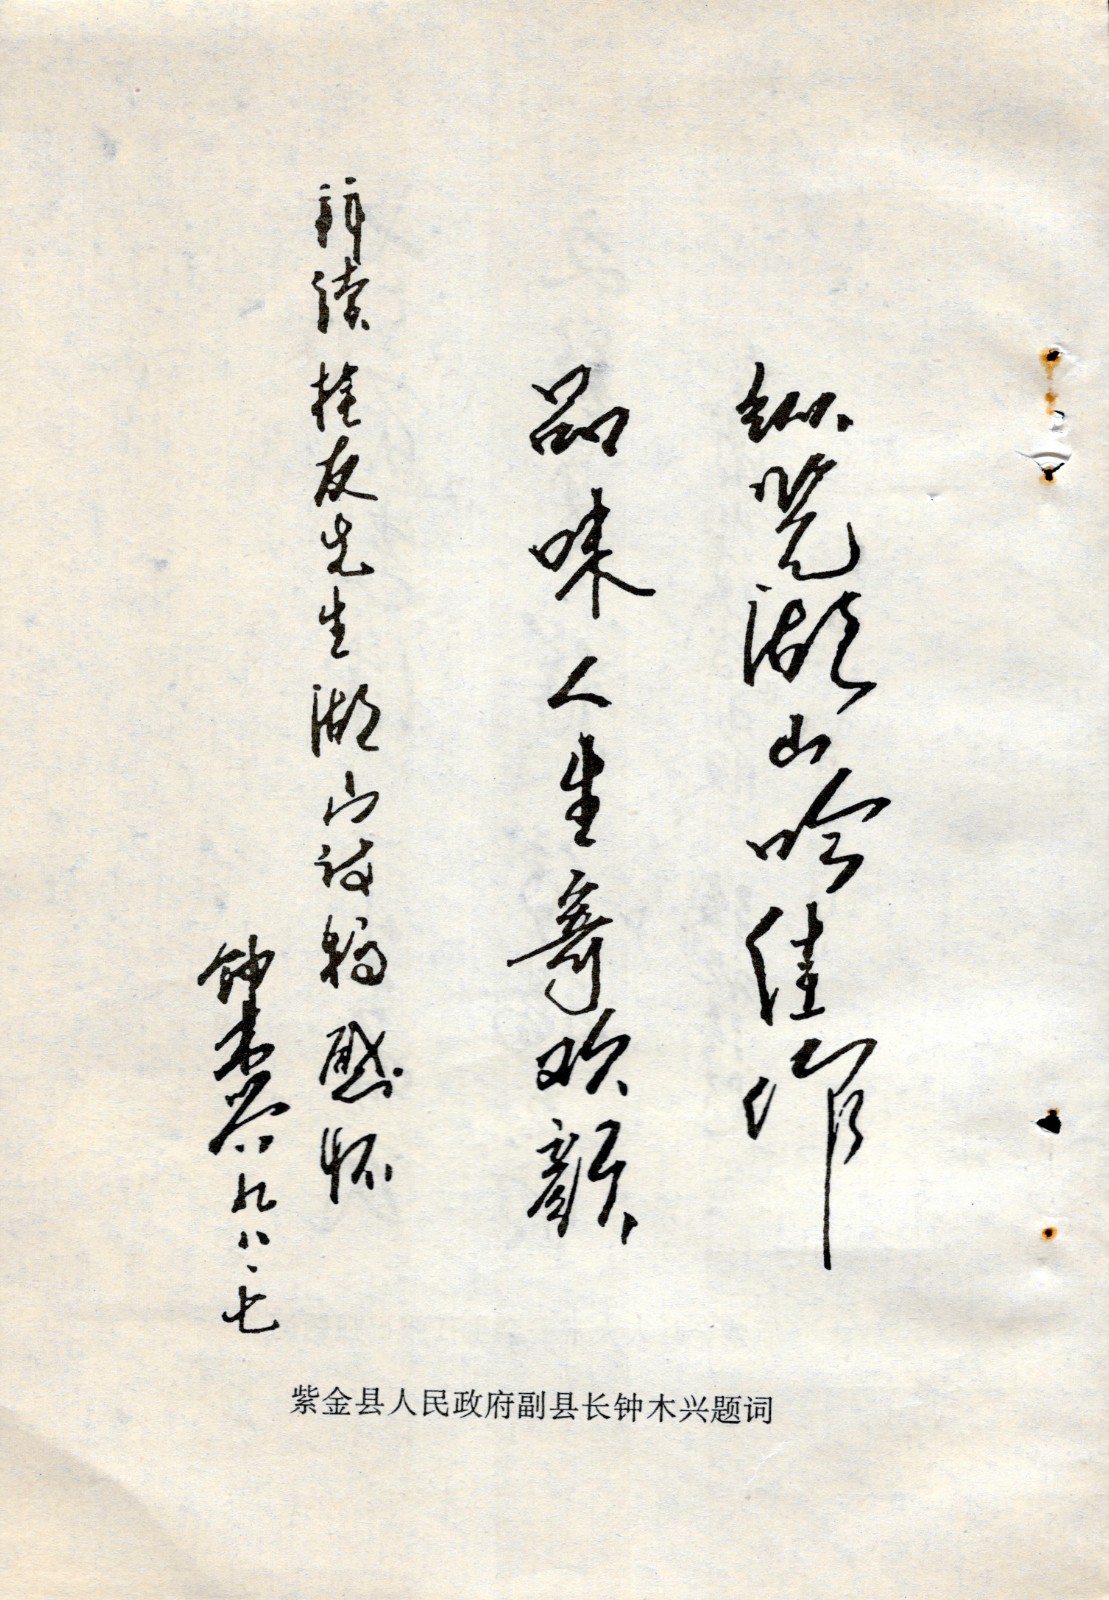 纵览湖山吟佳作
品味人生寄欢颜
拜读桂友先生湖山诗稿感怀
钟木兴 九八·七
紫金县人民政府副县长钟木兴题词